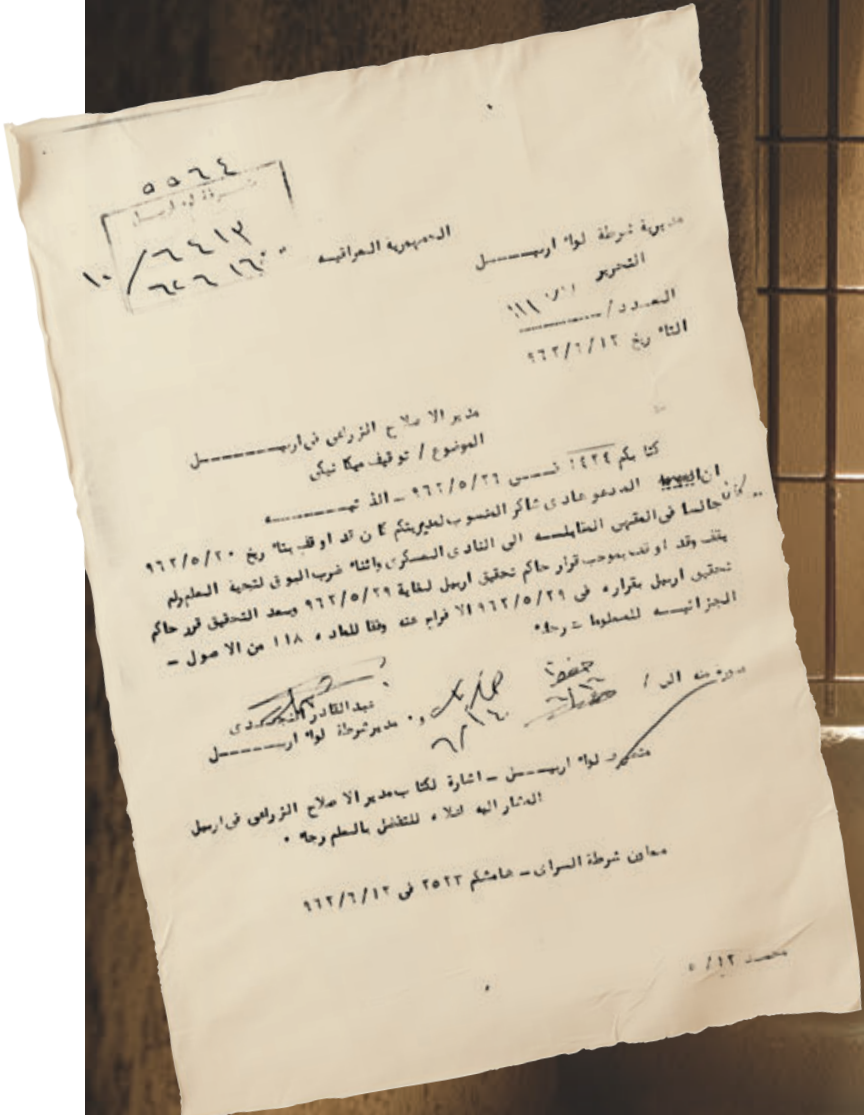 ٥٥٦٤
شرطة لواء اربيل
١٠/٦٤١٣
الجمهورية العراقيه
مديرية شرطة لواء اربيـــــل
التحرير
العدد/
التاء ريخ ٩٦٢/٦/١٢
مدير الا صلاح الزراعى فى اربـــــــل
الموضوع / توقيف ميكا نيكى
كتا بكم ١٤٢٤ فـــــى ٩٦٢/٥/٢٦ ــ
ان المدعو عادى شاكر المنسوب لمديريتكم كا ن قد اوقف بتاء ريخ ٩٦٢/٥/٢٠
كان جالسا فى المقهى المقابلـــه الى النادى العسكرى واثناء ضرب البوق لتحية العلم ولم
يقف وقد اوقف بموجب قرار حاكم تحقيق اربيل لغاية ٩٦٢/٥/٢٩ وبعد التحقيق قرر حاكم
تحقيق اربيل بقراره فى ٩٦٢/٥/٢٩ الا فراج عنه وفقا للماد ه ١١٨ من الا صول ــ
الجزائيـــه للمعلوما ت رجاء
حفظ
٦/١٦
٦/١٤
عبد القادر
و٠ مدير شرطة لواء اربـــــــل
صورة منه الى /
متصرف لواء اربيـــــل ــ اشارة لكتا ب مدير الا صلاح الزراعى فى اربيل
المشار اليه اعلا ه للتفضل بالعلم رجاء ٠
معاون شرطة السراى ــ هامشكم ٢٥٢٣ فى ٩٦٢/٦/١٢
محمد ١٢/